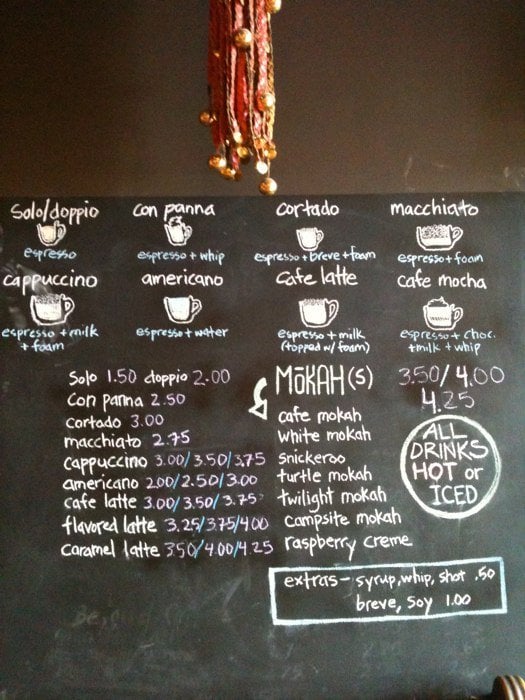 Solo/doppio con panna cortado macchiato
espresso espresso + whip espresso + breve + foam espresso + foam
cappuccino americano cafe latte cafe mocha
espresso + milk + foam espresso + water espresso + milk (topped w/ foam) espresso + choc. + milk + whip
Solo 1.50 doppio 2.00
con panna 2.50
cortado 3.00
macchiato 2.75
cappuccino 3.00/3.50/3.75
americano 2.00/2.50/3.00
cafe latte 3.00/3.50/3.75
flavored latte 3.25/3.75/4.00
caramel latte 3.50/4.00/4.25
MōKAH(s) 3.50/4.00
4.25
cafe mokah
white mokah
snickeroo
turtle mokah
twilight mokah
campsite mokah
raspberry creme
ALL
DRINKS
HOT or
ICED
extras - syrup, whip, shot .50
breve, soy 1.00